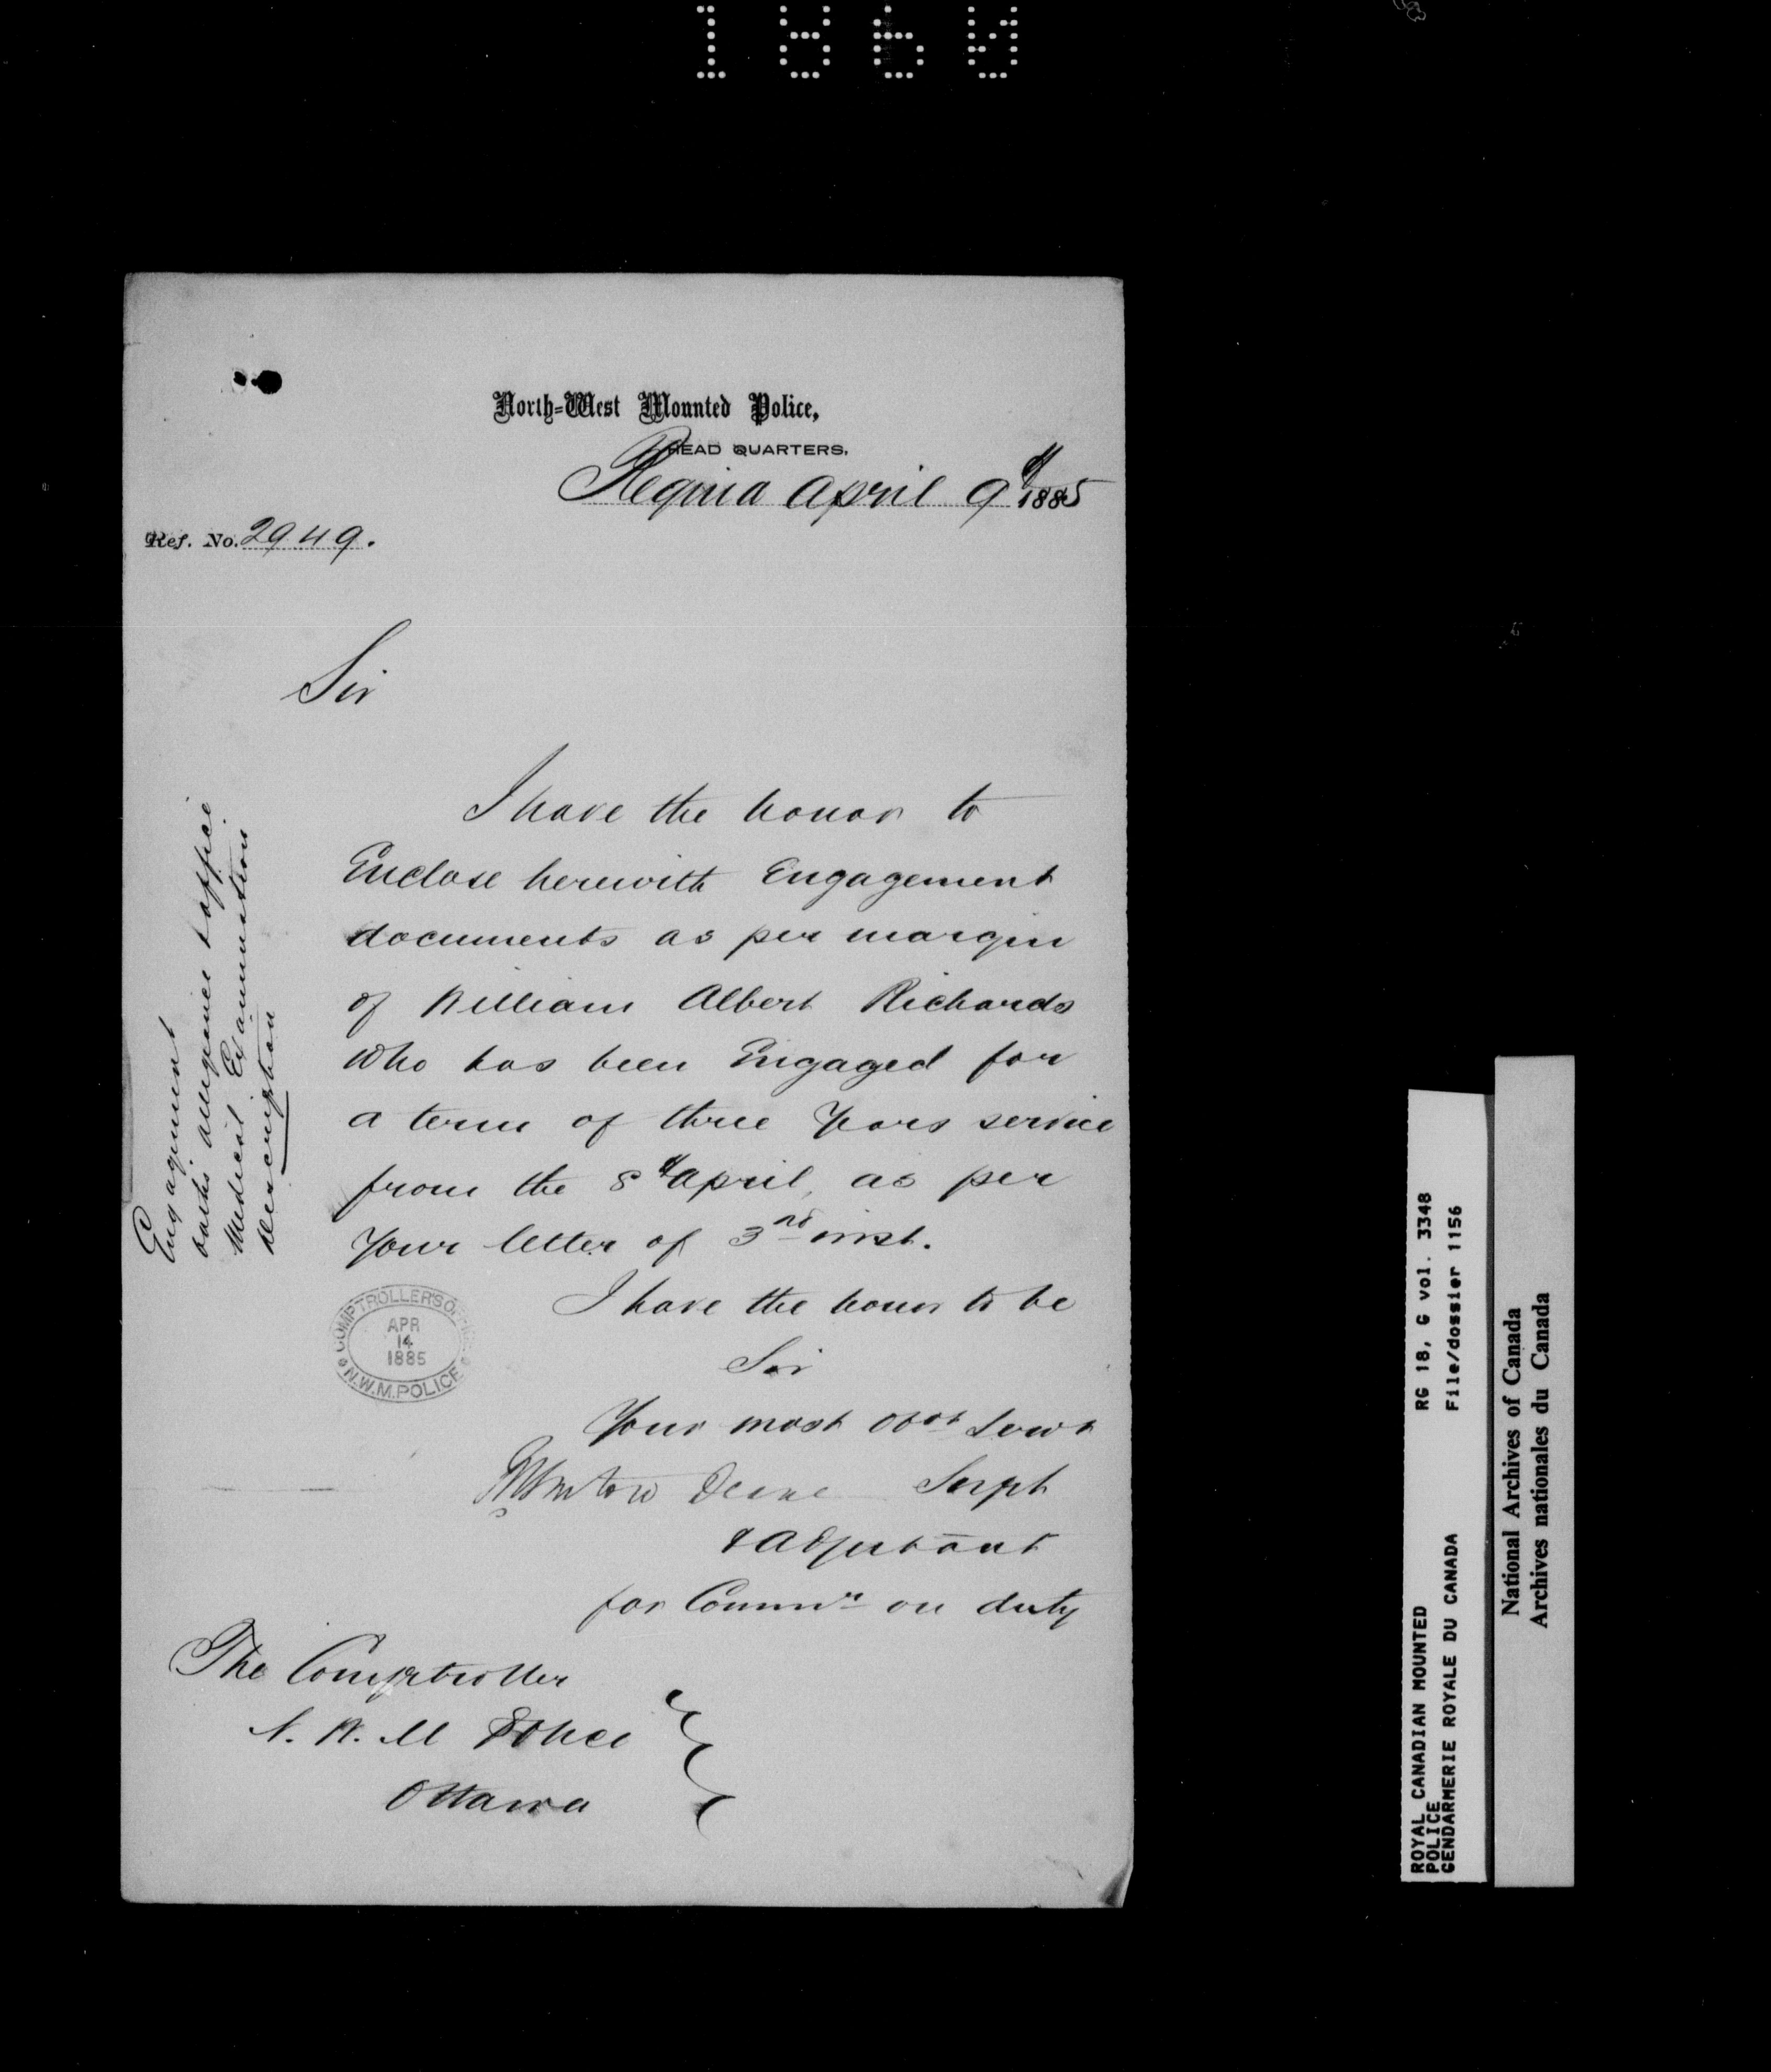 1860
North-West Mounted Police,
HEAD QUARTERS.
Regina April 9th 1885
Ref. No. 2949.
Sir
I have the honor to
Enclose herewith Engagement
documents as per margin
of William Albert Richards
who has been Engaged for
a term of three Years service
from the 8th April, as per
Your letter of 3rd inst.
I have the honor to be
Sir
Your most obdt Servt
Deane Supt
& Adjutant
for Commr on duty
The Comptroller
N. W. M Police
Ottawa
Engagement
oaths allegiance & office
Medical Examination
Description
COMPTROLLER'S OFFICE
APR
14
1885
N.W.M. POLICE
ROYAL CANADIAN MOUNTED RG 18, G vol. 3348
POLICE
GENDARMERIE ROYALE DU CANADA File/dossier 1156
National Archives of Canada
Archives nationales du Canada